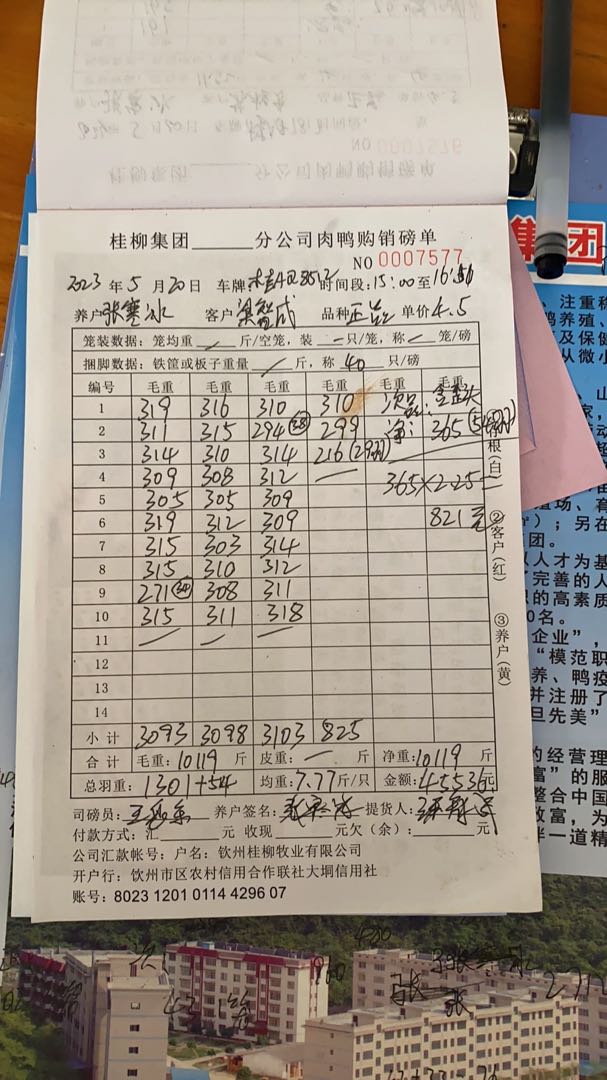 NO 0007576
桂柳集团______分公司肉鸭购销磅单
NO 0007577
2023 年 5 月 20 日 车牌 桂 时间段: 15:00 至 16:
养户 张寒冰 客户 梁智成 品种 正品 单价 4.5
笼装数据: 笼均重 / 斤/空笼, 装 — 只/笼, 称 / 笼/磅
捆脚数据: 铁筐或板子重量 / 斤, 称 40 只/磅
编号 毛重 毛重 毛重 毛重 毛重 毛重
1 319 316 310 310 次品:
2 311 315 294(38) 299 净: 365(54羽)
3 314 310 314 216(29羽)
4 309 308 312 — 365×2.25=
5 305 305 309
6 319 312 309 821元
7 315 303 314
8 315 310 312
9 271(34) 308 311
10 315 311 318
11 — — —
12
13
14
小计 3093 3098 3103 825
合计 毛重: 10119 斤 皮重: — 斤 净重: 10119 斤
总羽重: 1301+54 均重: 7.77斤/只 金额: 45536元
司磅员: 养户签名: 提货人:
付款方式: 汇______元 收现______元欠(余):______元
公司汇款帐号: 户名: 钦州桂柳牧业有限公司
开户行: 钦州市区农村信用合作联社大垌信用社
账号: 8023 1201 0114 4296 07
根(白)
②客户(红)
③养户(黄)
集团
、注重
鸭养殖、
及保健
从微小
); 另在
团。
人才为基
了完善的人
的高素质
0名。
企业”,
“模范职
养、鸭疫
并注册了
旦先美”
的经营理
富”的服
整合中国
致富, 为
伴一道精